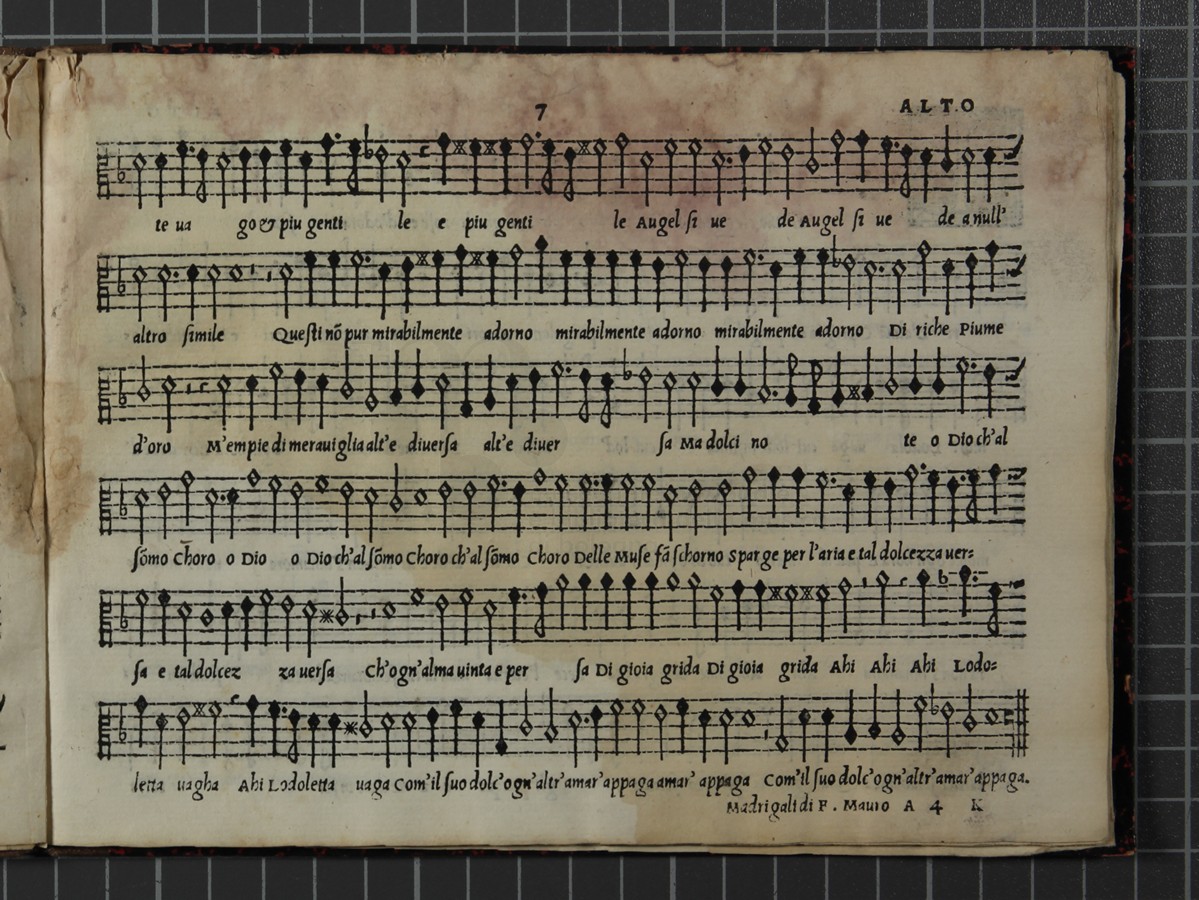 7
ALTO
te ua go & piu genti le e piu genti le Augel ſi ue de Augel ſi ue de a null'
altro ſimile Queſti nõ pur mirabilmente adorno mirabilmente adorno mirabilmente adorno Di riche Piume
d'oro M'empie di merauiglia alt'e diuerſa alt'e diuer ſa Ma dolci no te o Dio ch'al
sõmo Choro o Dio o Dio ch'al ſõmo Choro ch'al ſõmo Choro Delle Muſe fã ſchorno Sparge per l'aria e tal dolcezza uer=
ſa e tal dolcez za uerſa Ch'ogn'alma uinta e per ſa Di gioia grida Di gioia grida Ahi Ahi Ahi Lodo=
letta uagha Ahi Lodoletta uaga Com'il ſuo dolc'ogn'altr'amar'appaga amar' appaga Com'il ſuo dolc'ogn'altr'amar'appaga.
Madrigali di F. Mauro A 4 K